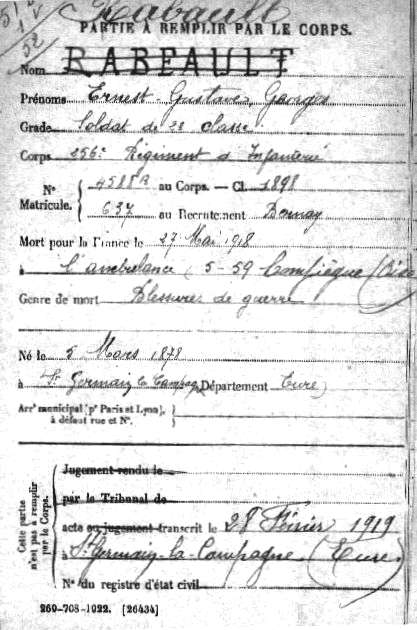 51 1 V 52
Rabault
PARTIE À REMPLIR PAR LE CORPS.
Nom RABEAULT
Prénoms Ernest Gustave Georges
Grade Soldat de 2e classe
Corps 256e Régiment d'Infanterie
N° Matricule. { 4588 au Corps. — Cl. 1898
637 au Recrutement Bernay
Mort pour la France le 27 Mai 1918
à l'ambulance 5-59 Compiègne (Oise
Genre de mort Blessures de guerre
Né le 5 Mars 1878
à St Germain la Campag. Département Eure
Arrt municipal (pr Paris et Lyon), à défaut rue et N°. }
Cette partie n'est pas à remplir par le Corps.
Jugement rendu le
par le Tribunal de
acte ou jugement transcrit le 28 Février 1919
à St Germain-la-Campagne (Eure)
N° du registre d'état civil
260-708-1922. [26434]